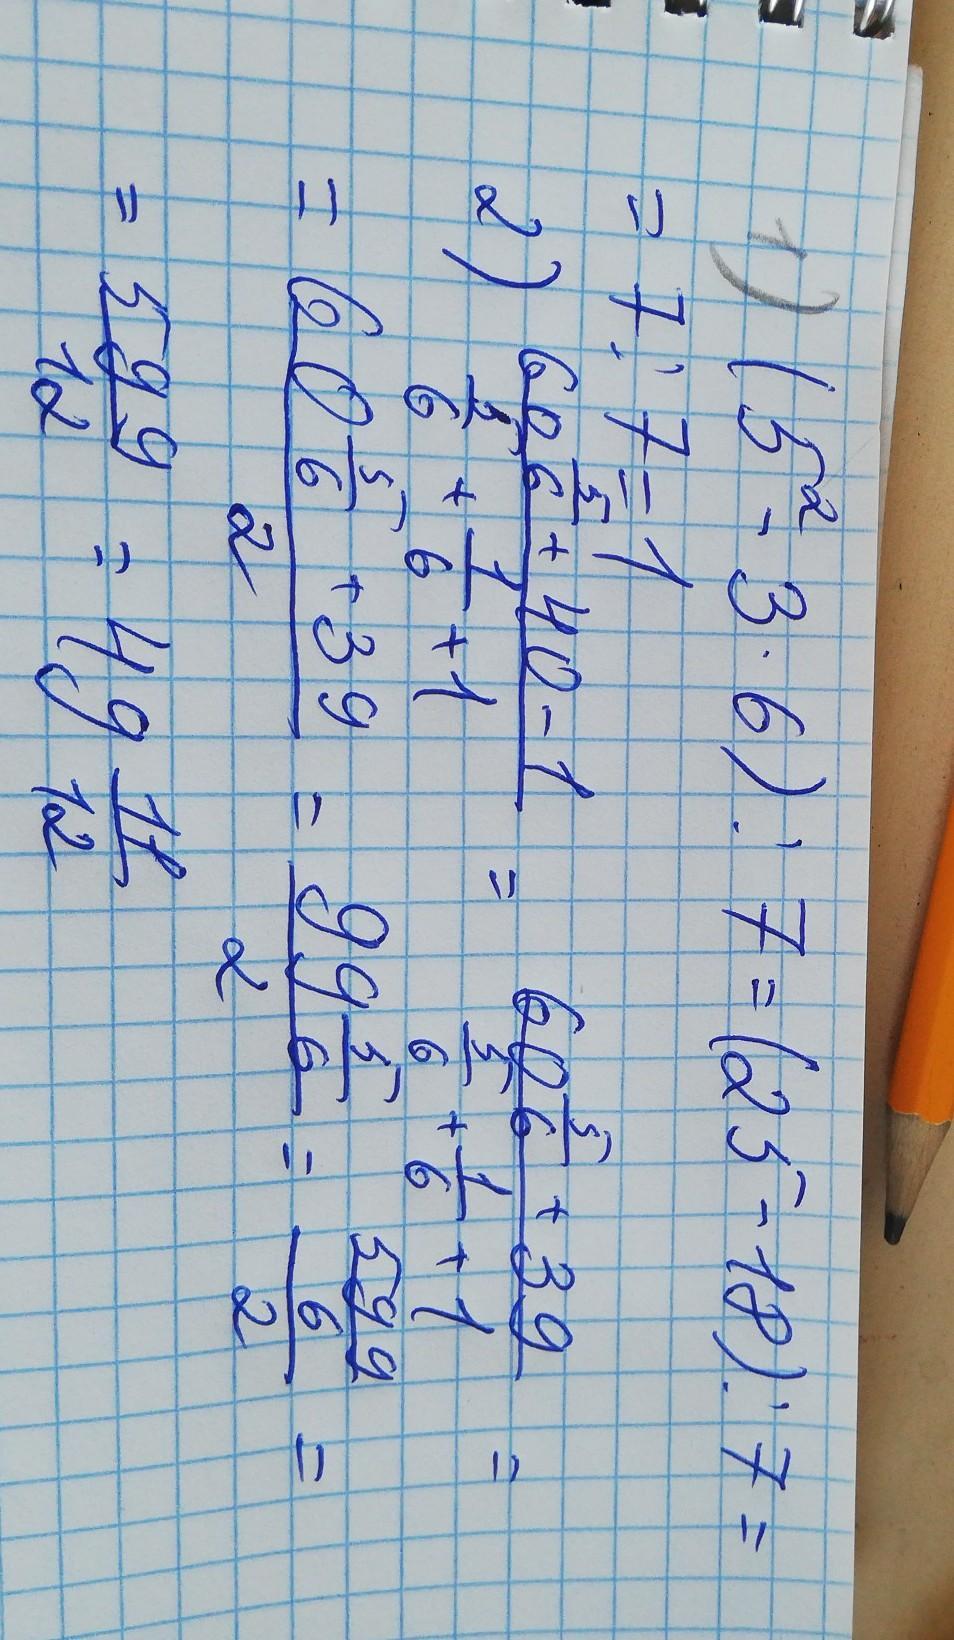 1) (5² - 3 · 6) : 7 = (25 - 18) : 7 =
= 7 : 7 = 1
2) (60 5/6 + 40 - 1)/(5/6 + 1/6 + 1) = (60 5/6 + 39)/(5/6 + 1/6 + 1) =
= (60 5/6 + 39)/2 = (99 5/6)/2 = (599/6)/2 =
= 599/12 = 49 11/12